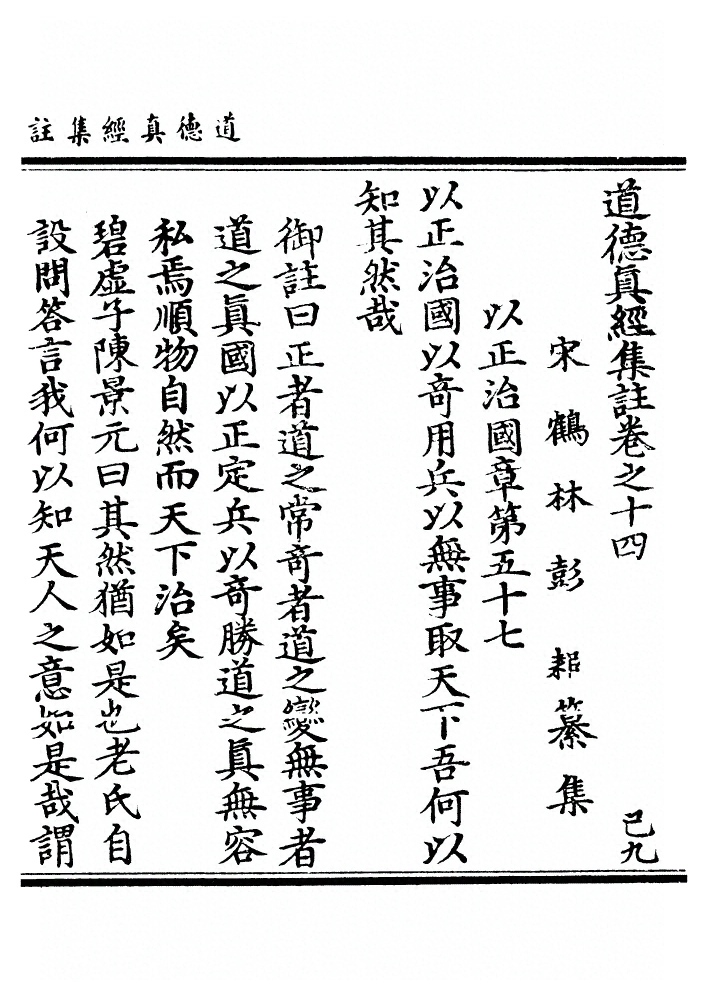 道德真經集註
道德眞經集註卷之十四 己九
宋鶴林彭耜纂集
以正治國章第五十七
以正治國以奇用兵以無事取天下吾何以
知其然哉
御註曰正者道之常奇者道之變無事者
道之眞國以正定兵以奇勝道之眞無容
私焉順物自然而天下治矣
碧虛子陳景元曰其然猶如是也老氏自
設問答言我何以知天人之意如是哉謂